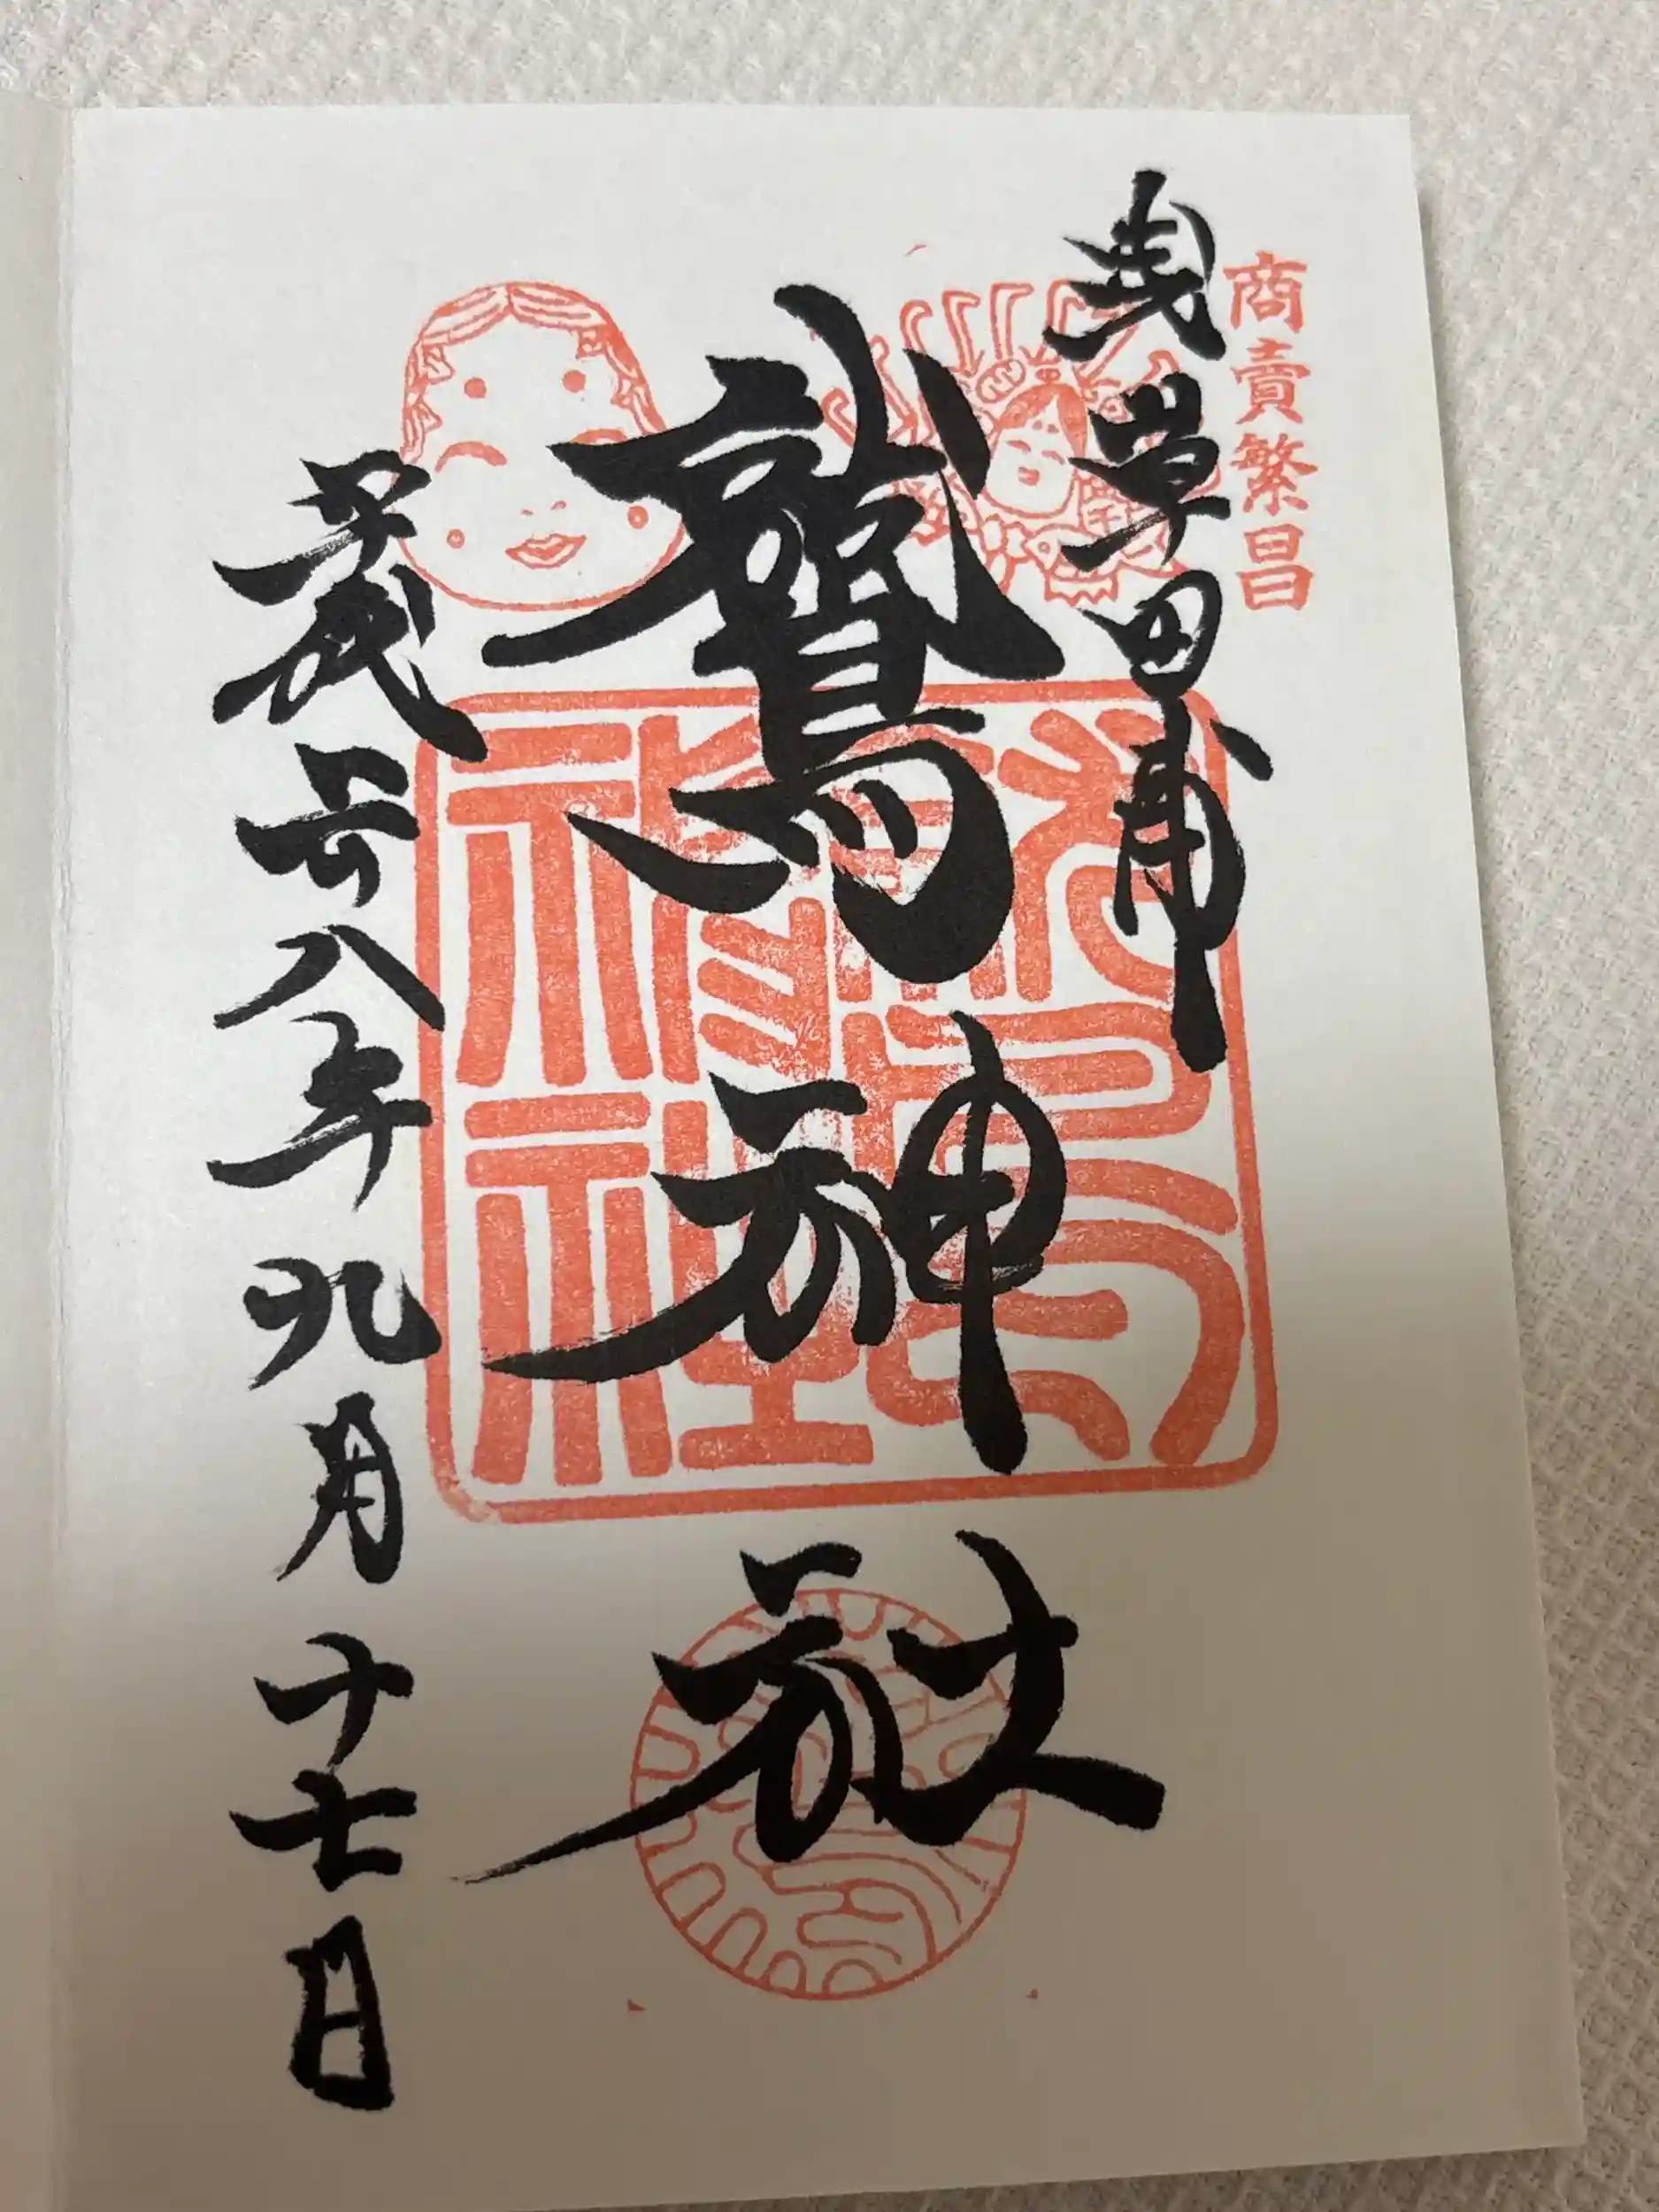 商賣繁昌
浅草田甫
鷲神社
鷲
神社
平成廿八年九月十七日